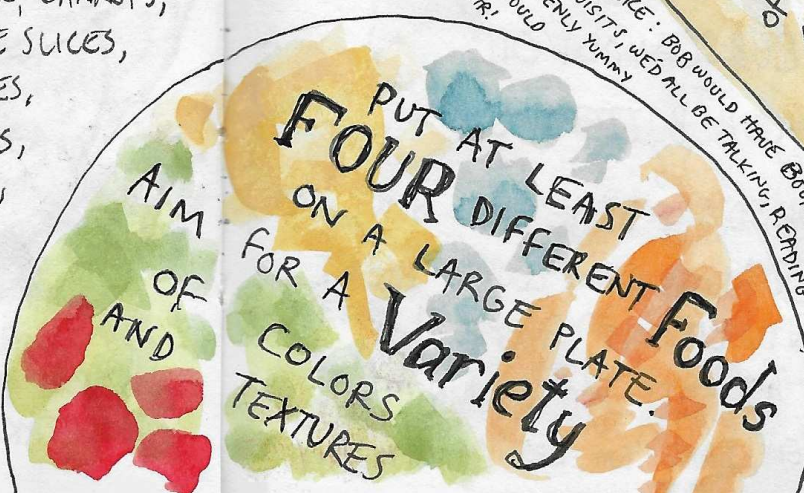 SLICES,
PUT AT LEAST
FOUR DIFFERENT Foods
ON A LARGE PLATE.
AIM FOR A Variety
OF COLORS
AND TEXTURES
: BOB WOULD HAVE
VISITS, WE'D ALL BE TALKING, READING
YUMMY